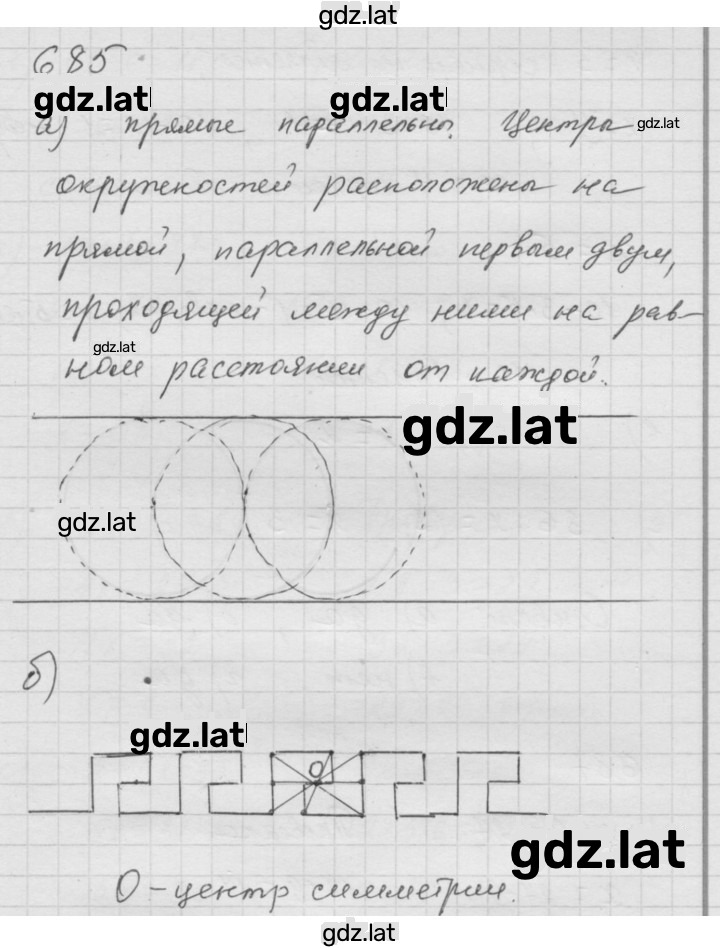 gdz.lat
685
gdz.lat gdz.lat
а) прямые параллельны. Центры gdz.lat
окружностей расположены на
прямой, параллельной первым двум,
проходящей между ними на рав-
gdz.lat
ном расстоянии от каждой.
gdz.lat
gdz.lat
б)
gdz.lat
O
gdz.lat
О - центр симметрии.
gdz.lat